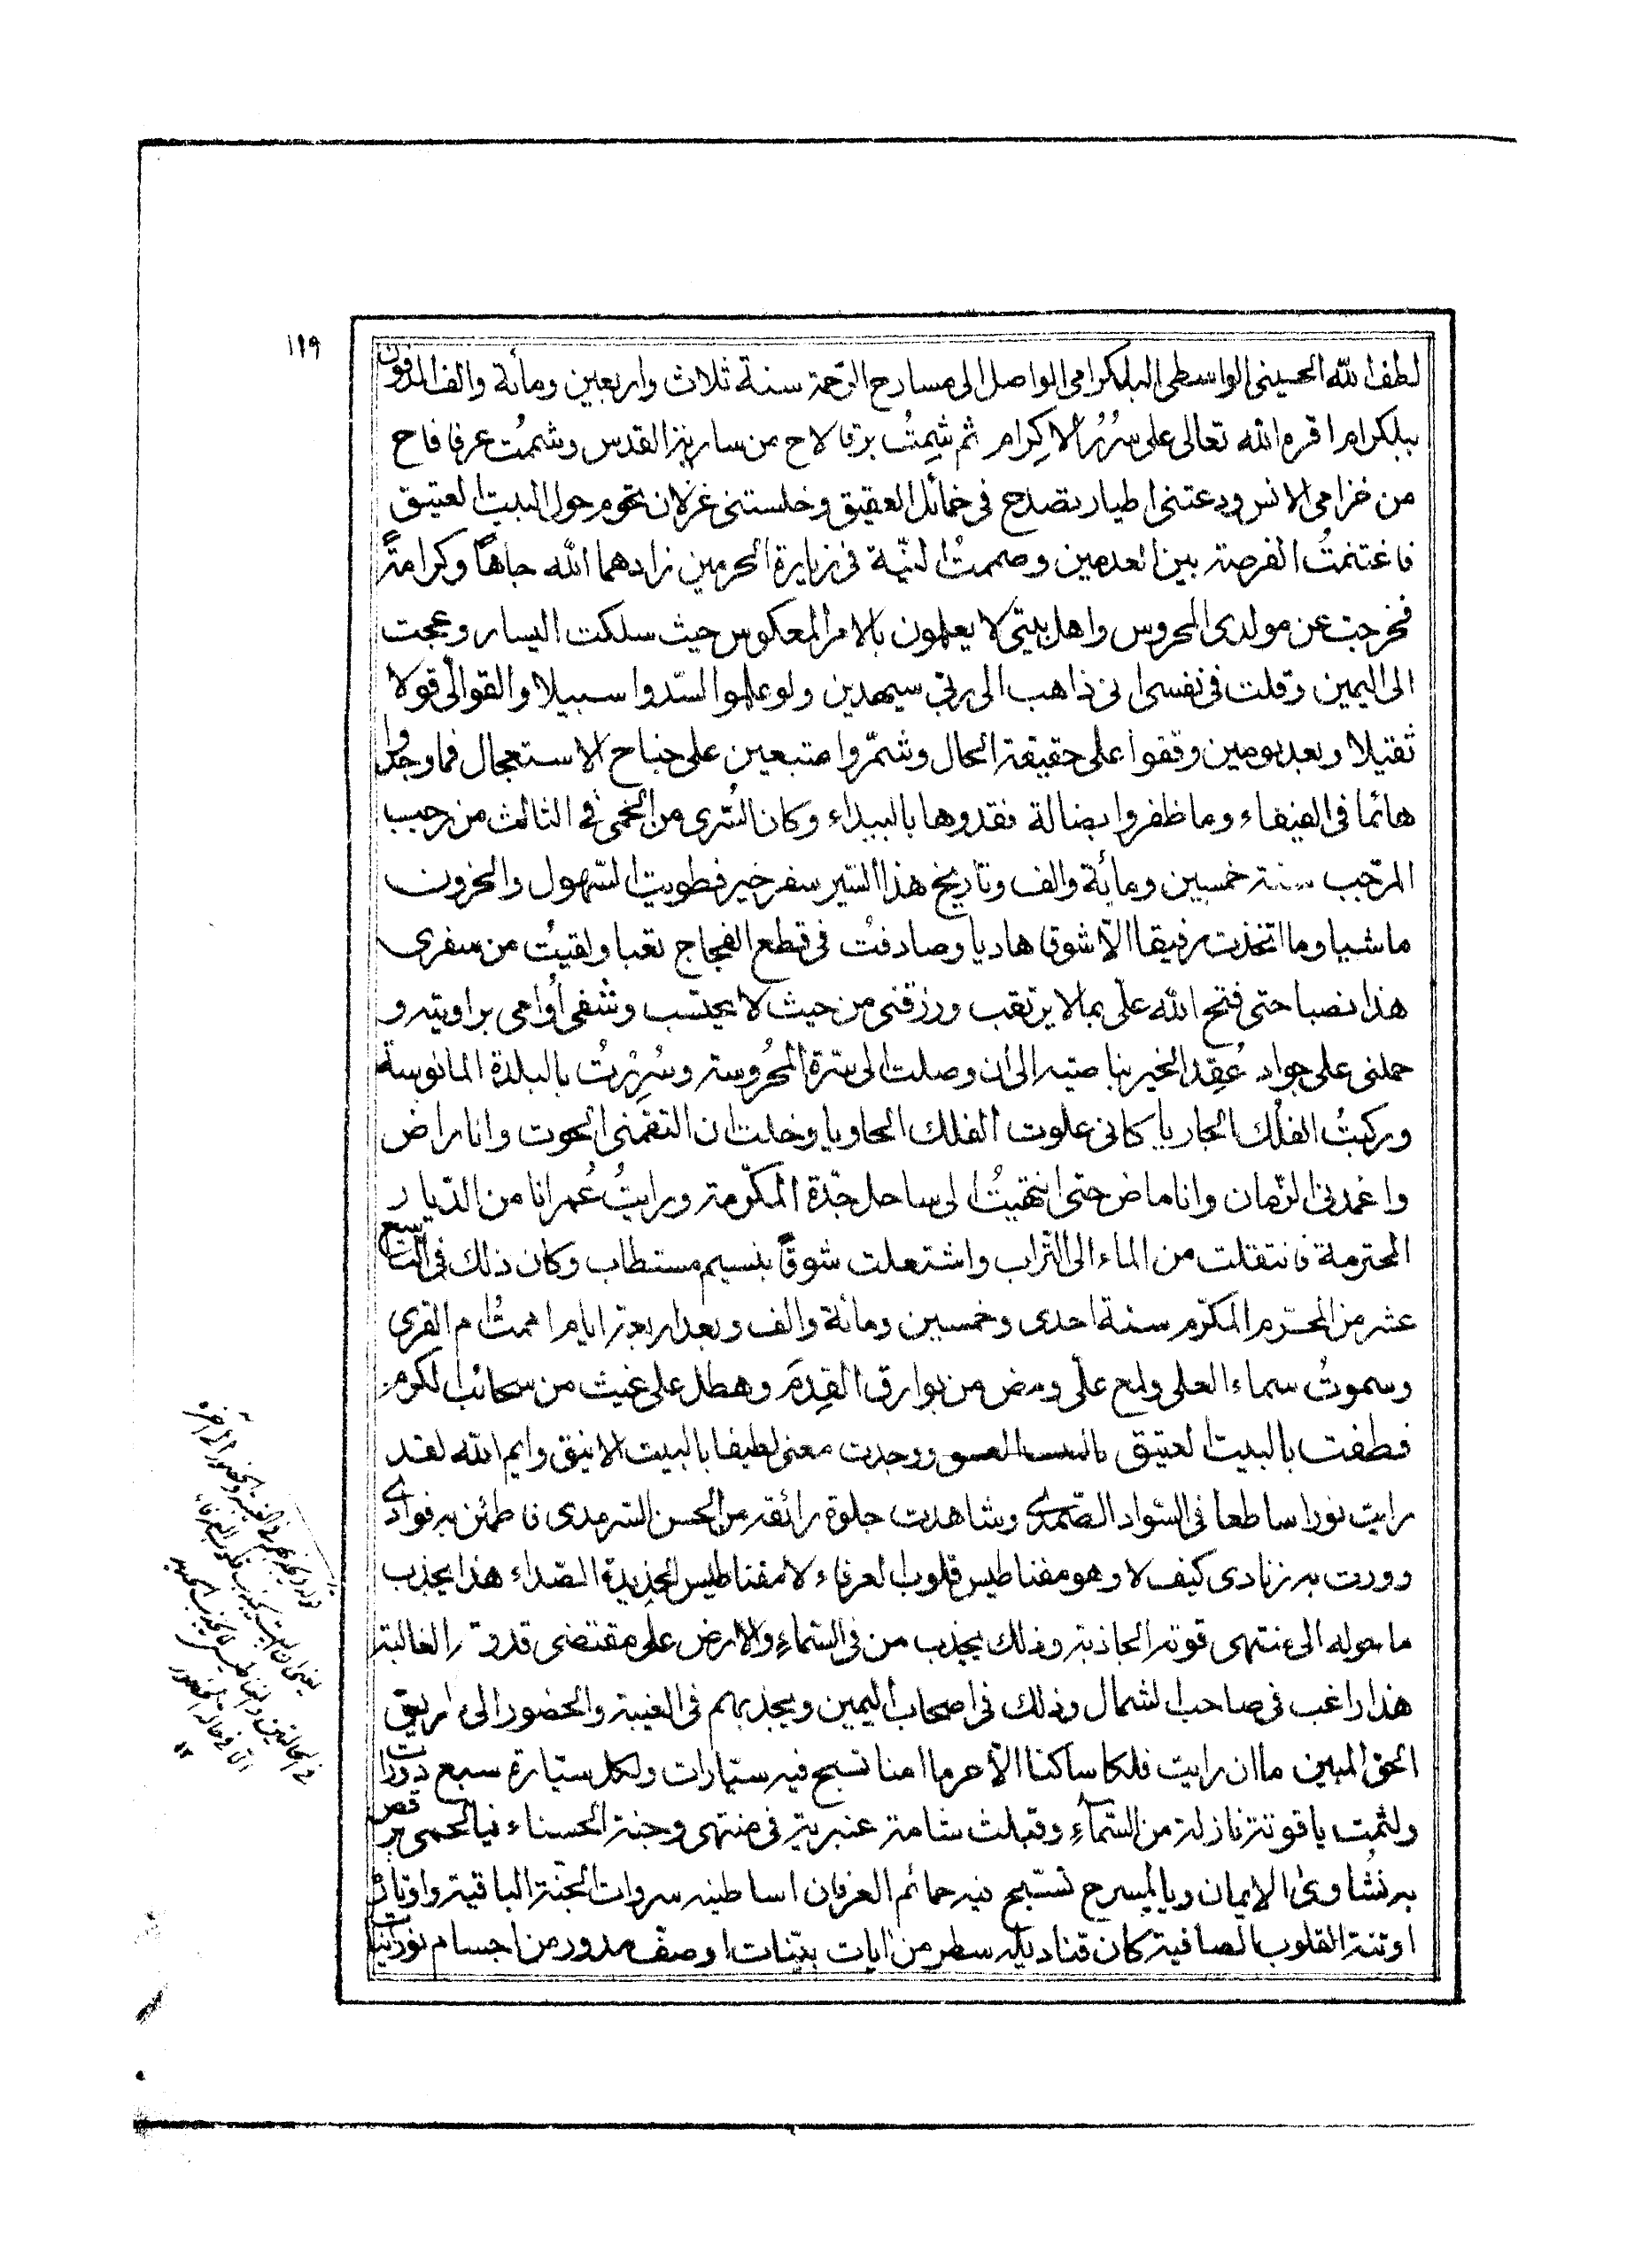 ١١٩
لطف الله الحسيني الواسطي البلكرامي الواصل الى مسارح الرحمة سنة ثلاث واربعين ومأية والف المدفون
ببلكرام اقره الله تعالى على سُرُر الاكرام ثم شِمتُ برقا لاح من ساريتر القدس وشممُت عرفا فاح
من خزامى الانس ودعتنى اطيار تصدح فى خمائل العقيق وخلستنى غزلان تحوم حول البيت العتيق
فاغتنمتُ الفرصة بين العدمين وصممتُ النيّة فى زيارة الحرمين زادهما الله جاهًا وكرامةً
فخرجت عن مولدى المحروس واهل بيتى لا يعلمون بالامر المعكوس حيث سلكت اليسار وعجت
الى اليمين وقلت فى نفسى انى ذاهب الى ربّى سيهدين ولو علموا السّدوا سبيلا والقوا الىّ قولا
ثقيلا وبعد يومين وقفوا على حقيقة الحال وشمّروا متبعين على جناح الاستعجال فما وجدوا
هائما فى الفيفاء وما ظفروا بضالة فقدوها بالبيداء وكان السُّرى من الحمى فى الثالث من رجب
المرجّب سنة خمسين ومأية والف وتاريخ هذا السّير سفر خير فطويت السّهول والحزون
ماشيا وما اتخذت رفيقا الّا شوقا هاديا وصادفتُ فى قطع الفجاج تعبا ولقيتُ من سفرى
هذا نصبا حتى فتح الله علىّ بما لا يرتقب ورزقنى من حيث لا يحتسب وشفى أُوامى براويته و
حملنى على جواد عُقِد الخير بناصيته الى ان وصلت الى سترة المحُروسة وسُرِرتُ بالبلدة المانوسة
وركبتُ الفلك الجاريا كانى علوت الفلك الحاويا وخلت ان التقمنى الحوت وانا راض
واغمدنى الزّمان وانا ماض حتى انتهيتُ الى ساحل جدّة المكرّمة ورايتُ عُمرانا من الدّيار
المحترمة فانتقلت من الماء الى التّراب واشتعلت شوقًا بنسيم مستطاب وكان ذلك فى التاسع
عشر من المحرّم المكرّم سنة احدى وخمسين ومائة والف وبعد اربعة ايام اممتُ ام القرى
وسموتُ سماء العلى ولمع علىّ ومض من بوارق القِدَم وهطل علىّ غيث من سحائب الكرم
فطفت بالبيت العتيق ووجدت معنى لطيفا بالبيت الانيق وايم الله لقد
رايت نورا ساطعا فى السّواد الصّمدى وشاهدت جلوة رائقة من الحسن السّرمدى فاطمئن به فوادى
وورت به زنادى كيف لا وهو مغناطيس قلوب العرفاء لا مغناطيس الحديدة الصّداء هذا يجذب
ما حوله الى منتهى قوته الجاذبة وذلك يجذب من فى السّماءِ والارض على مقتضى قدرته الغالبة
هذا راغب فى صاحب الشمال وذلك فى اصحاب اليمين ويجذبهم فى الغيبة والحضور الى طريق
الحق المبين ما ان رايت فلكا ساكنا الّا حرما امنا تسبح فيه سيّارات ولكل سيّارة سبع دورات
ولثمت ياقوتة نازلة من السّماءِ وقبلت شامة عنبرية فى منتهى وجنة الحسناء فيا لحمى ترقص
به نشاوى الايمان ويا لمسرح تسبح فيه حمائم العرفان اساطينه سروات الجنّة الباقية واوتاره
اوتنة القلوب الصافية كان قناديله سطر من ايات بيّنات او صف مدور من اجسام نورانيات